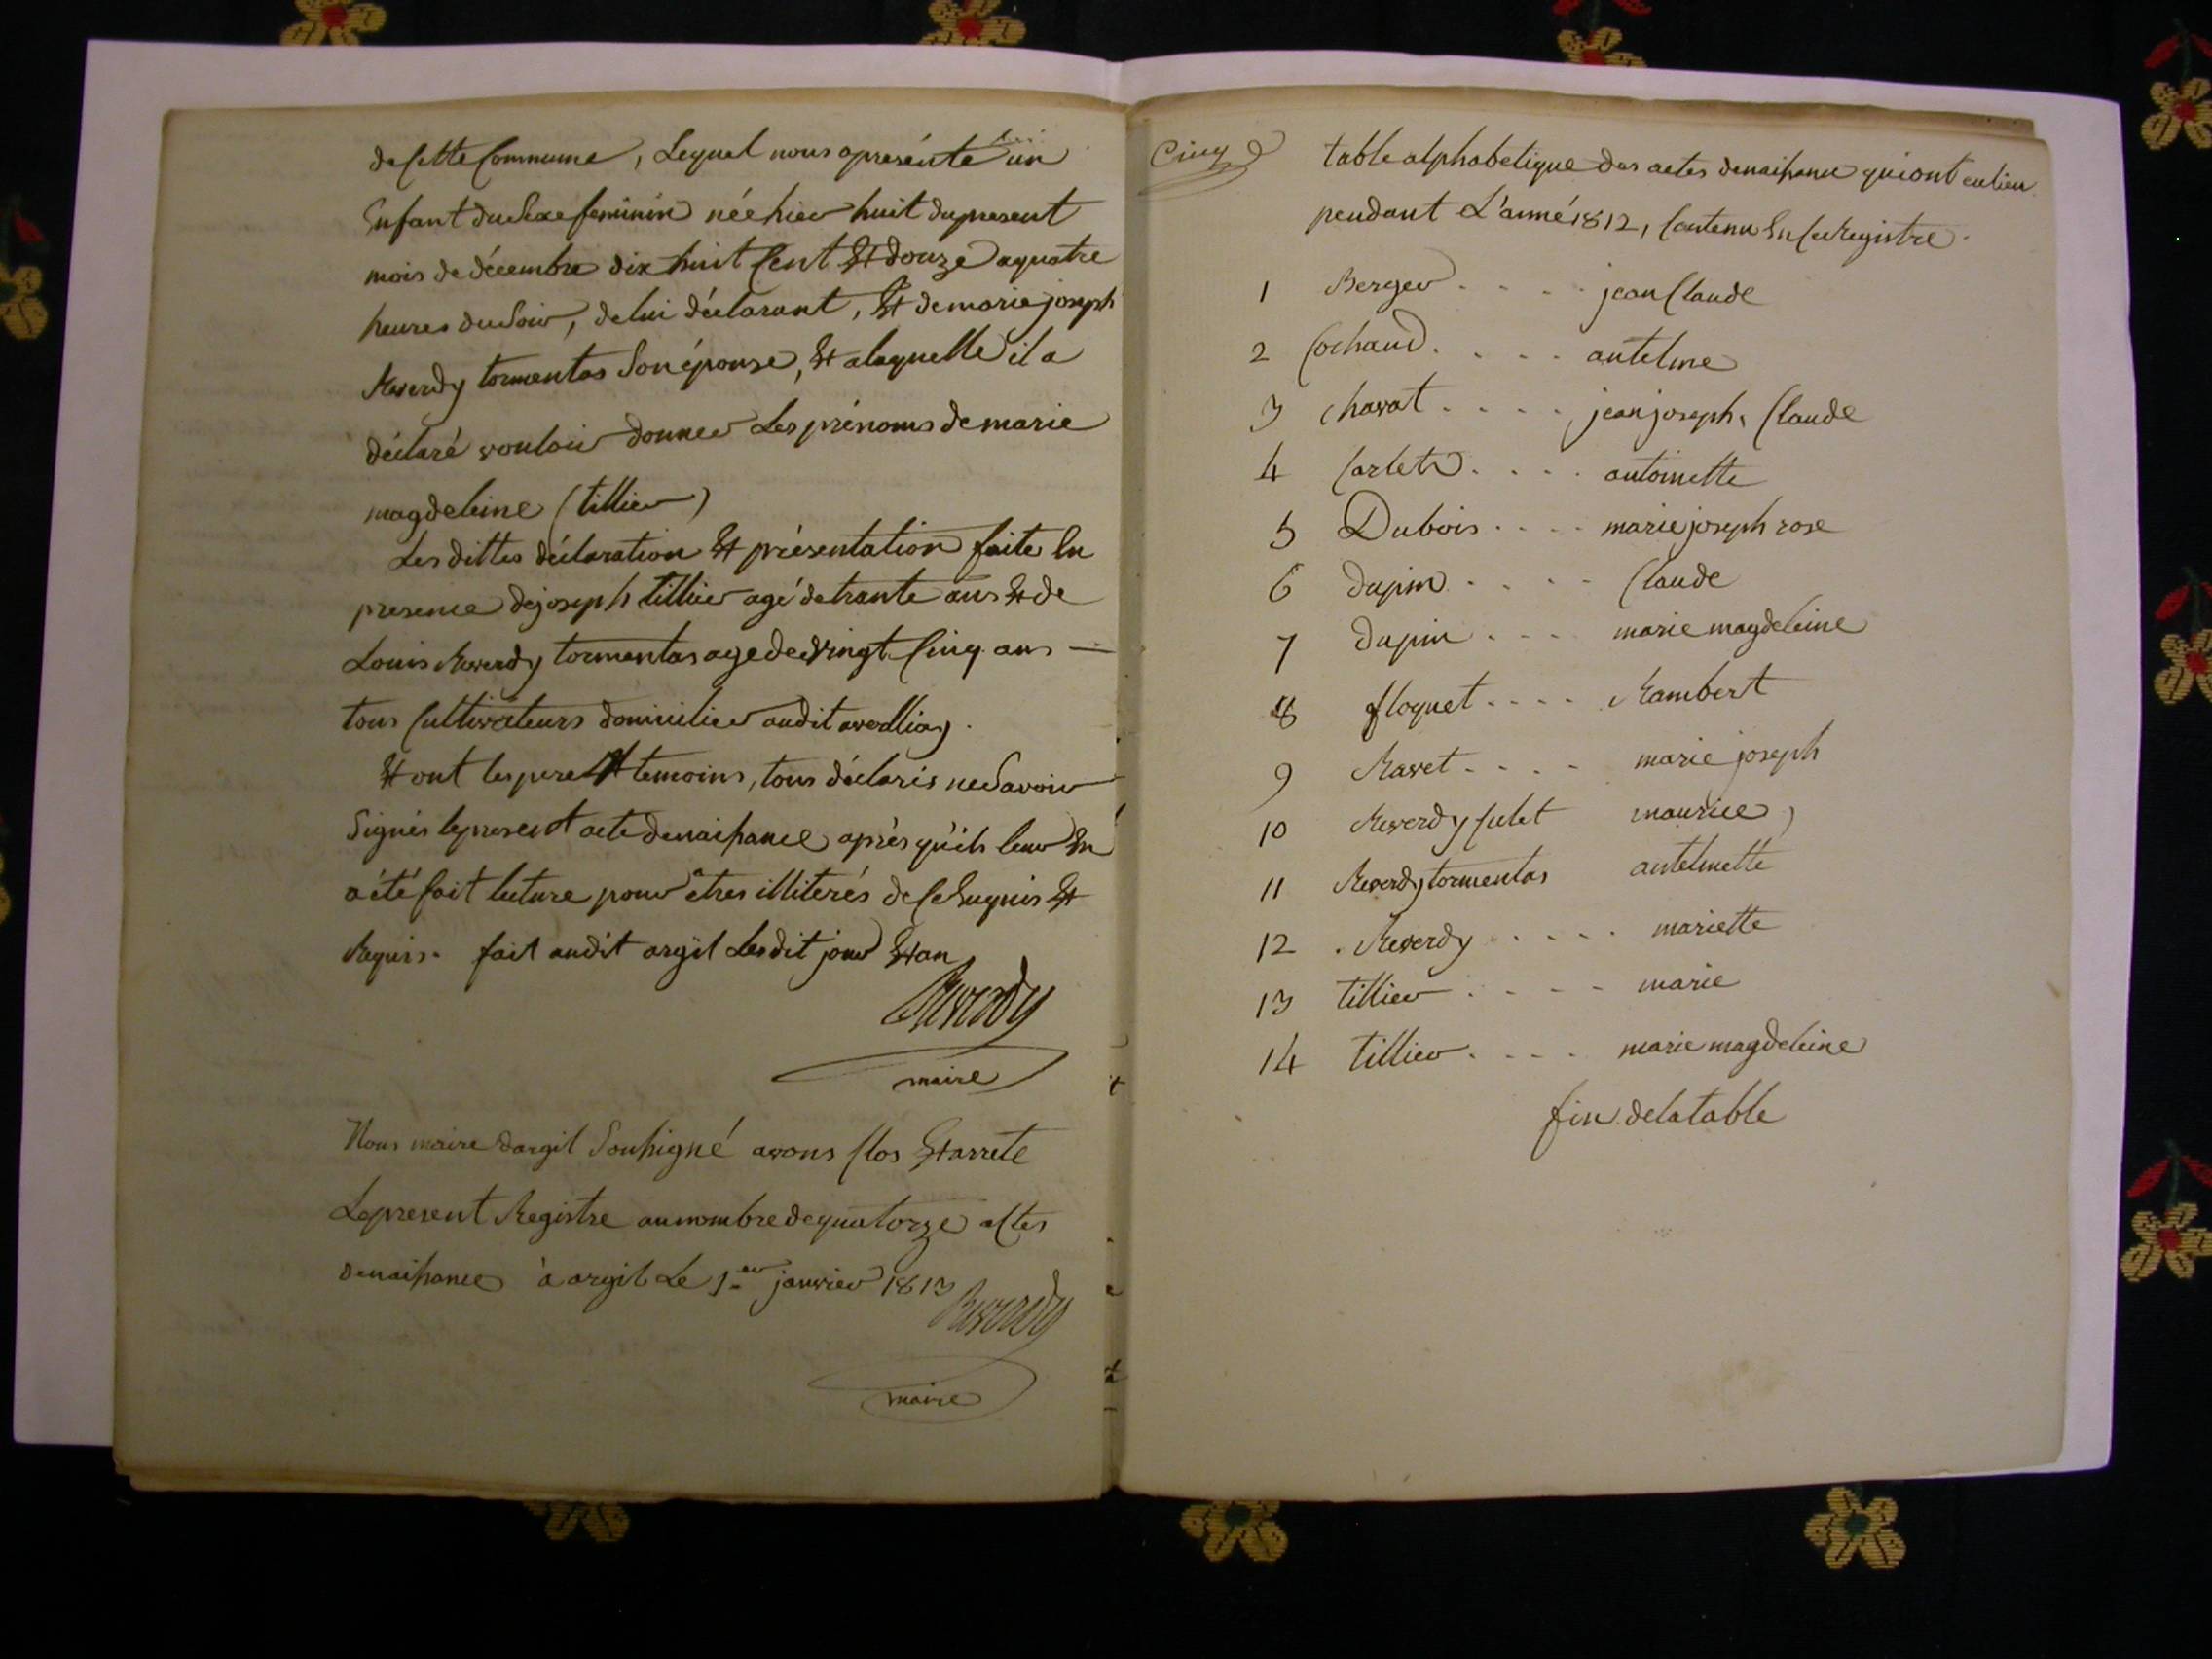 de Cette Commune, Lequel nous a presénte un
Enfant du Sexe feminin née hier huit du present
mois de décembre dix huit Cent Et douze a quatre
heures du Soir, de lui déclarant, Et de marie joseph
Reverdy tormentas Son épouse, Et a laquelle il a
déclaré vouloir donner Les prénoms de marie
magdeleine (tillier)
Les dittes déclaration Et présentation faite En
presence de joseph tillier agé de trante ans Et de
Louis Reverdy tormentas age de vingt Cinq ans —
tous Cultivateurs domicilier audit
Et ont les pere Et temoins, tous déclarés ne Savoir
Signés le present acte de naissance après qu'ils leur En
a été fait lecture pour êtres illiterés de Ce Enquis Et
Requis. fait audit argil Les dit jour Et an
Reverdy
maire
Nous maire dargil Soussigné avons Clos Et arrete
Le present Registre au nombre de quatorze actes
de naissance à argil Le 1.er janvier 1813
Reverdy
maire
Cinq
table alphabetique des actes de naissance qui ont eu lieu
pendant L'anné 1812, Contenu En Ce Registre.
1 Berger . . . . jean Claude
2 Cochand . . . . antelme
3 Charat . . . . jean joseph, Claude
4 Carlet . . . . antoinette
5 Dubois . . . . marie joseph rose
6 dupin . . . . Claude
7 dupin . . . marie magdeleine
8 floquet . . . . Rambert
9 Ravet . . . . marie joseph
10 Reverdy Culet maurice
11 Reverdy tormentas antelmette
12 . Reverdy . . . . . mariette
13 tillier . . . . marie
14 tillier . . . . marie magdeleine
fin de la table